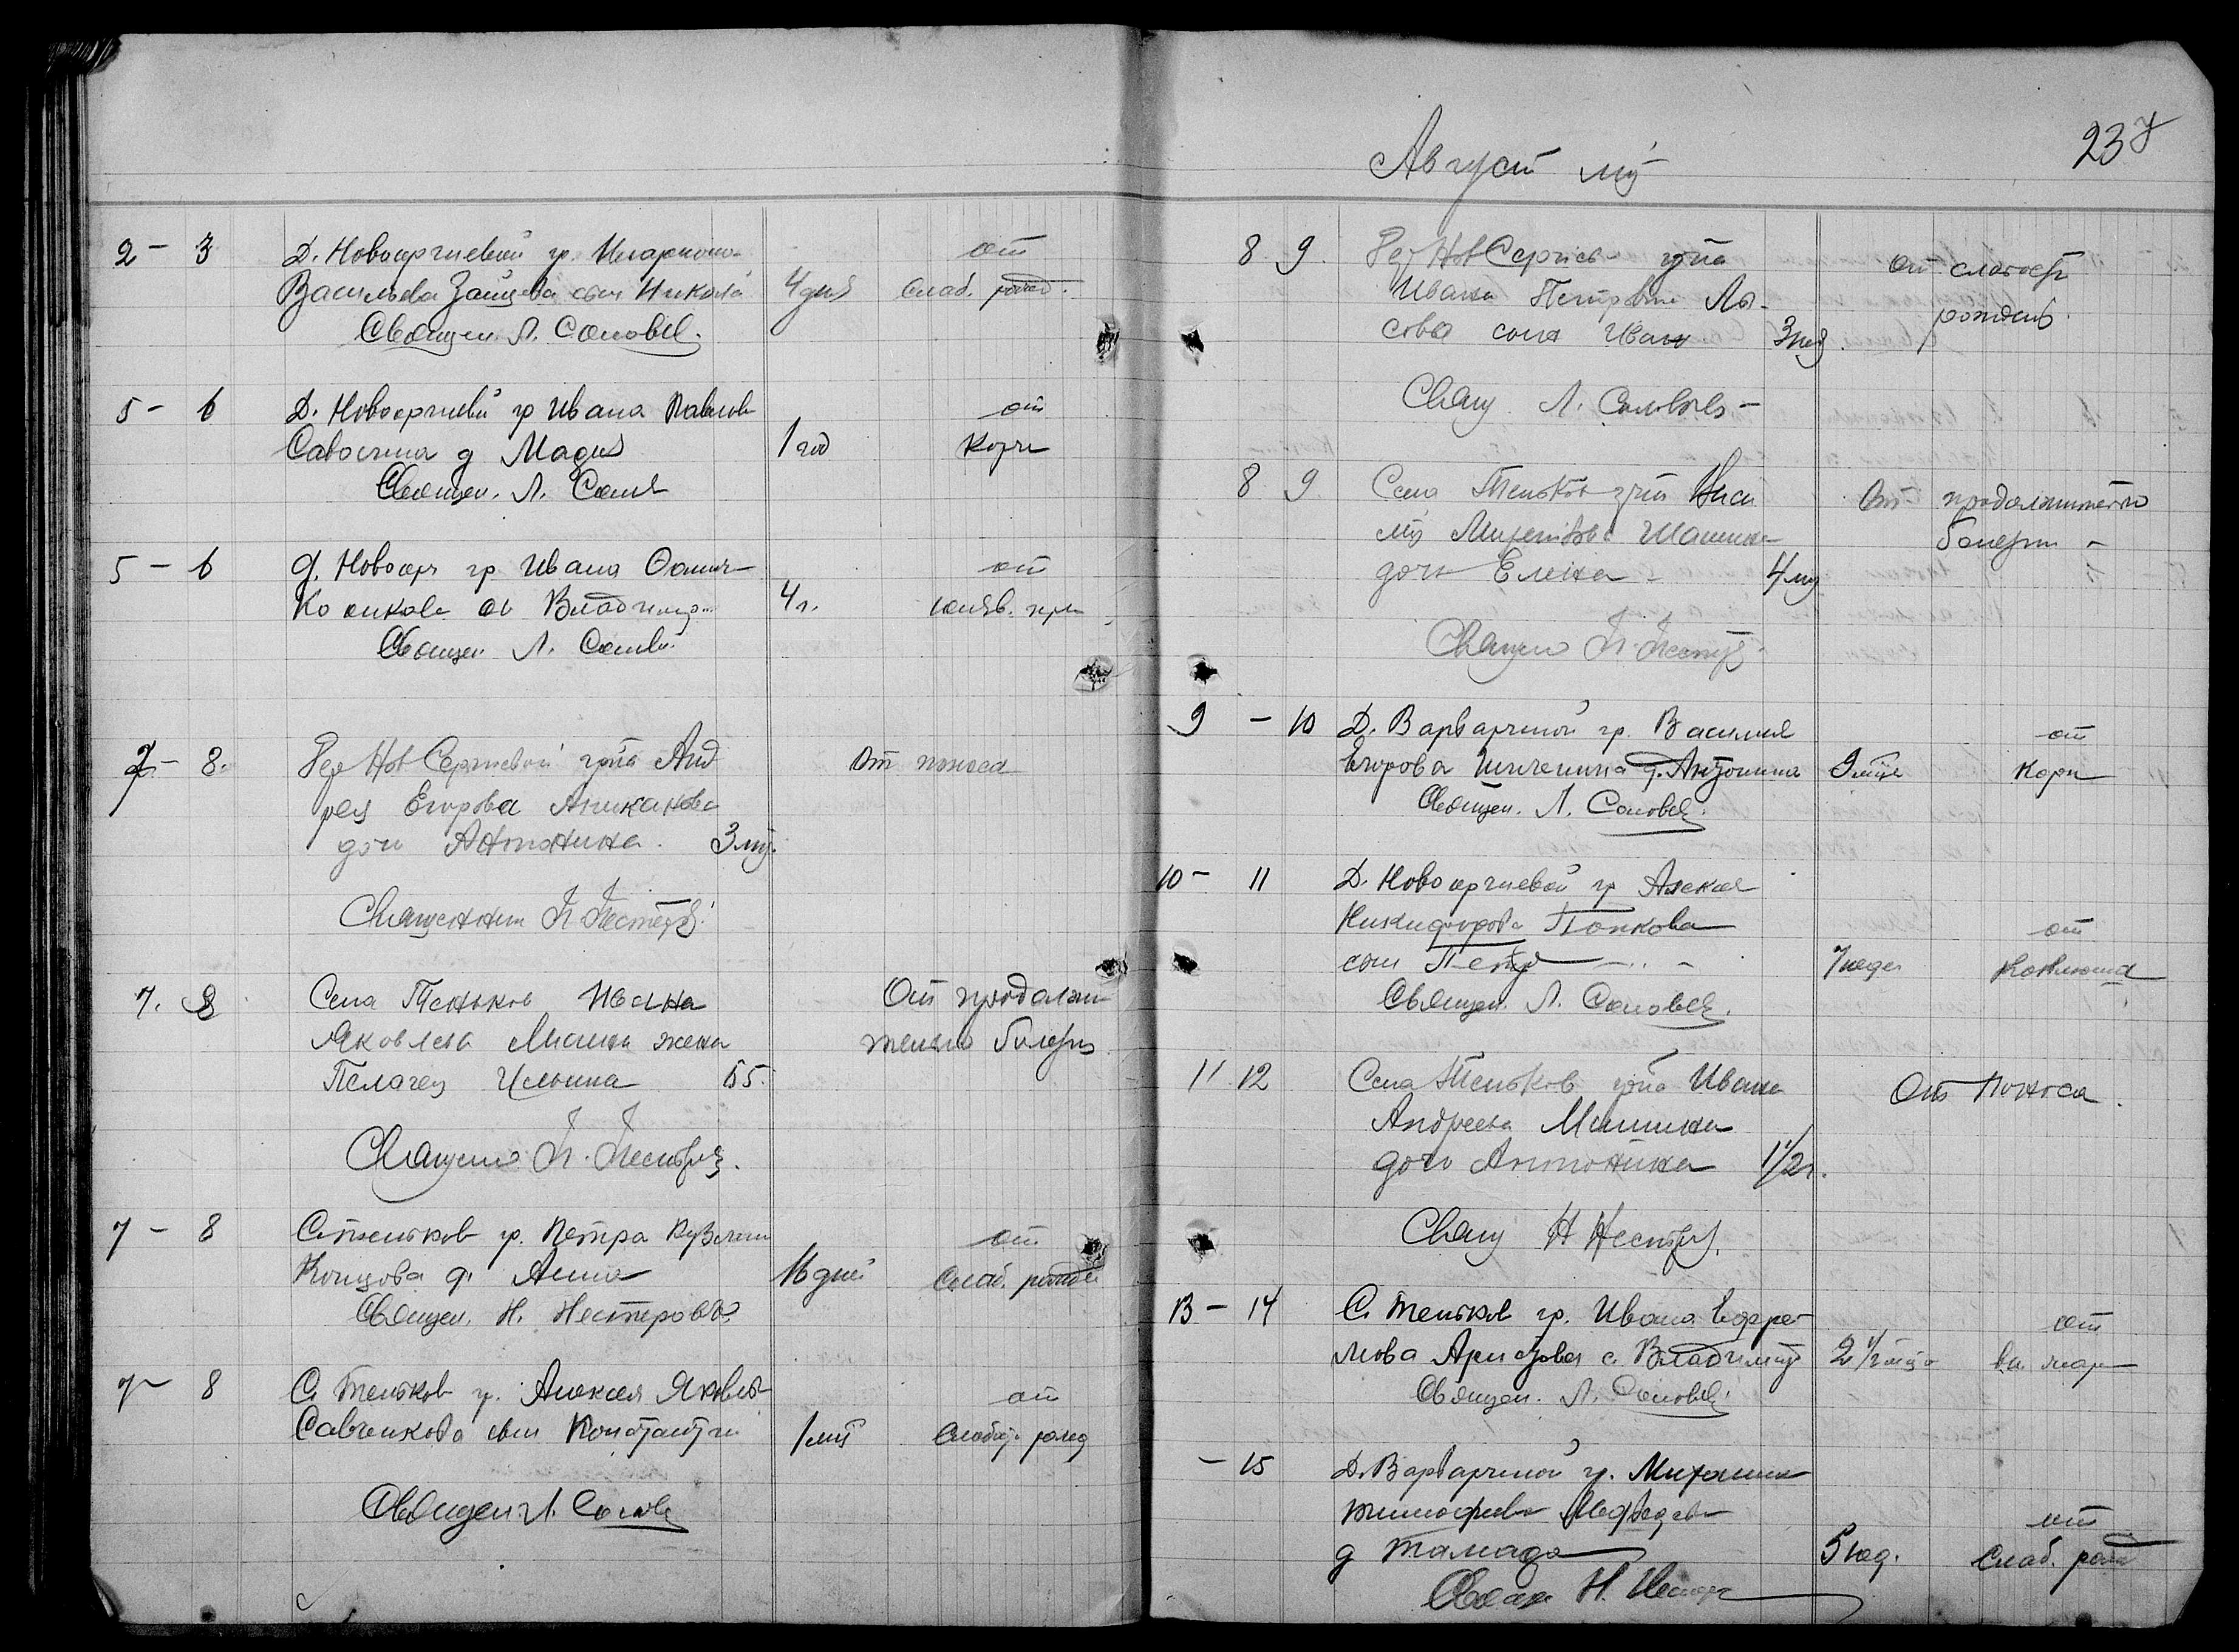 2 - 3 Д. Новосергиевой гр. Илариона
Васильева Зайцева сын Николай 4 дня от слаб. рожд.
Священ. Л. Соловьев.
5 - 6 Д. Новосергиевой гр Ивана Павлов
Савостина д Мария 1 год от Кори
Священ. Л. Солов
5 - 6 д. Новосерг гр Ивана
сн Владимир 4 г. от
Священ. Л. Солов
7 - 8. Дер Нов Сергиевой гр-на Анд
рея Егорова Аниканова От поноса
дочь Антонина. 3 мц.
Священник Н. Нестеров
7. 8 Села Теньков Ивана От продолжи
Яковлева Мишина жена тельно болезни
Пелагея Ильина 65.
Священ Н. Нестеров.
7 - 8 С. Теньков гр. Петра Кузьмин
Концова д. Анна 16 дней от Слаб. рожде
Священ. Н. Нестеров
7 - 8 С. Теньков гр. Алексея Яковлев
Савченкова сын Константин 1 мц от Слабос рожд
Священ. Л. Солов
Август мц
237
8 9. Дер Нов Сергиев гр-на
Ивана Петрова Лы- от слабости
сова сын Иван 3 рожден.
Свящ Л. Соловьев
8 9 Села Теньков гр-на От продолжительно
Шашина болезни
дочь Елена 4 мц
Священ Н. Нестер
9 - 10 Д. Варвариной гр. Василия
Егорова д. Антонина 9 мце от Кори
Священ. Л. Соловьев.
10 - 11 Д. Новосергиевой гр Алексея
Никифорова Попкова
сын Петр 7 недел от Коклюша
Священ. Л. Соловьев.
11 12 Села Теньков гр-на Ивана
Андреева Мишина От Поноса.
дочь Антонина 1 1/2 г.
Свящ Н Нестеров.
13 - 14 С. Теньков гр. Ивана Ефре
мова с. Владимир 2 1/2 от
Священ. Л. Соловьев.
- 15 Д. Варвариной гр. Михаила
Тимофеева Медведева
д Тамара 5 нед. от Слаб. рожд
Свящ Н. Нестер